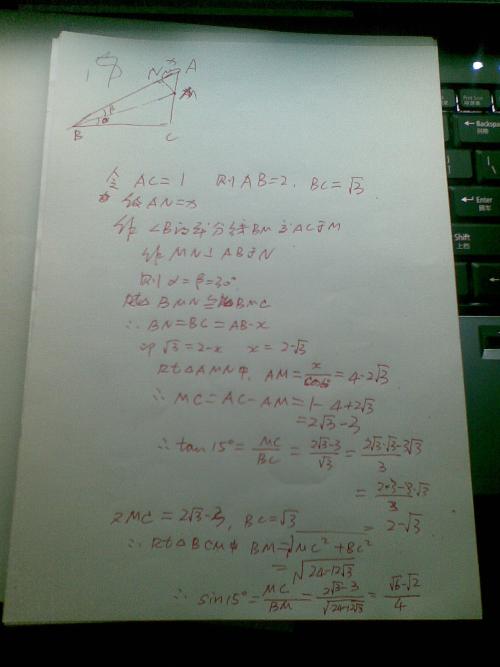 x
N
A
M
β
α
B
C
令 AC=1 则 AB=2, BC=√3
设 AN=x
作 ∠B的平分线BM交AC于M
作 MN⊥AB于N
则 α=β=30°
Rt△BMN≌Rt△BMC
∴ BN=BC=AB-x
即 √3=2-x x=2-√3
Rt△AMN中, AM=x/cos60°=4-2√3
∴ MC=AC-AM=1-4+2√3
=2√3-3
∴ tan15°=MC/BC=(2√3-3)/√3=(2√3·√3-3√3)/3
=(2·3-3·√3)/3
=2-√3
又MC=2√3-3, BC=√3
∴ Rt△BCM中 BM=√(MC²+BC²)
=√(24-12√3)
∴ sin15°=MC/BM=(2√3-3)/√(24-12√3)=(√6-√2)/4
Backspace
Enter
Shift
上档